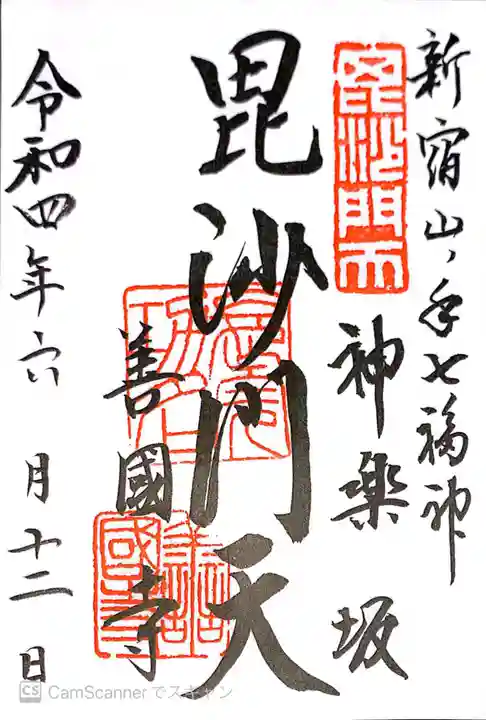 新宿山ノ手七福神
神楽坂
毘沙門天
善國寺
令和四年六月十二日
毘沙門天
善國寺
CS CamScanner でスキャン